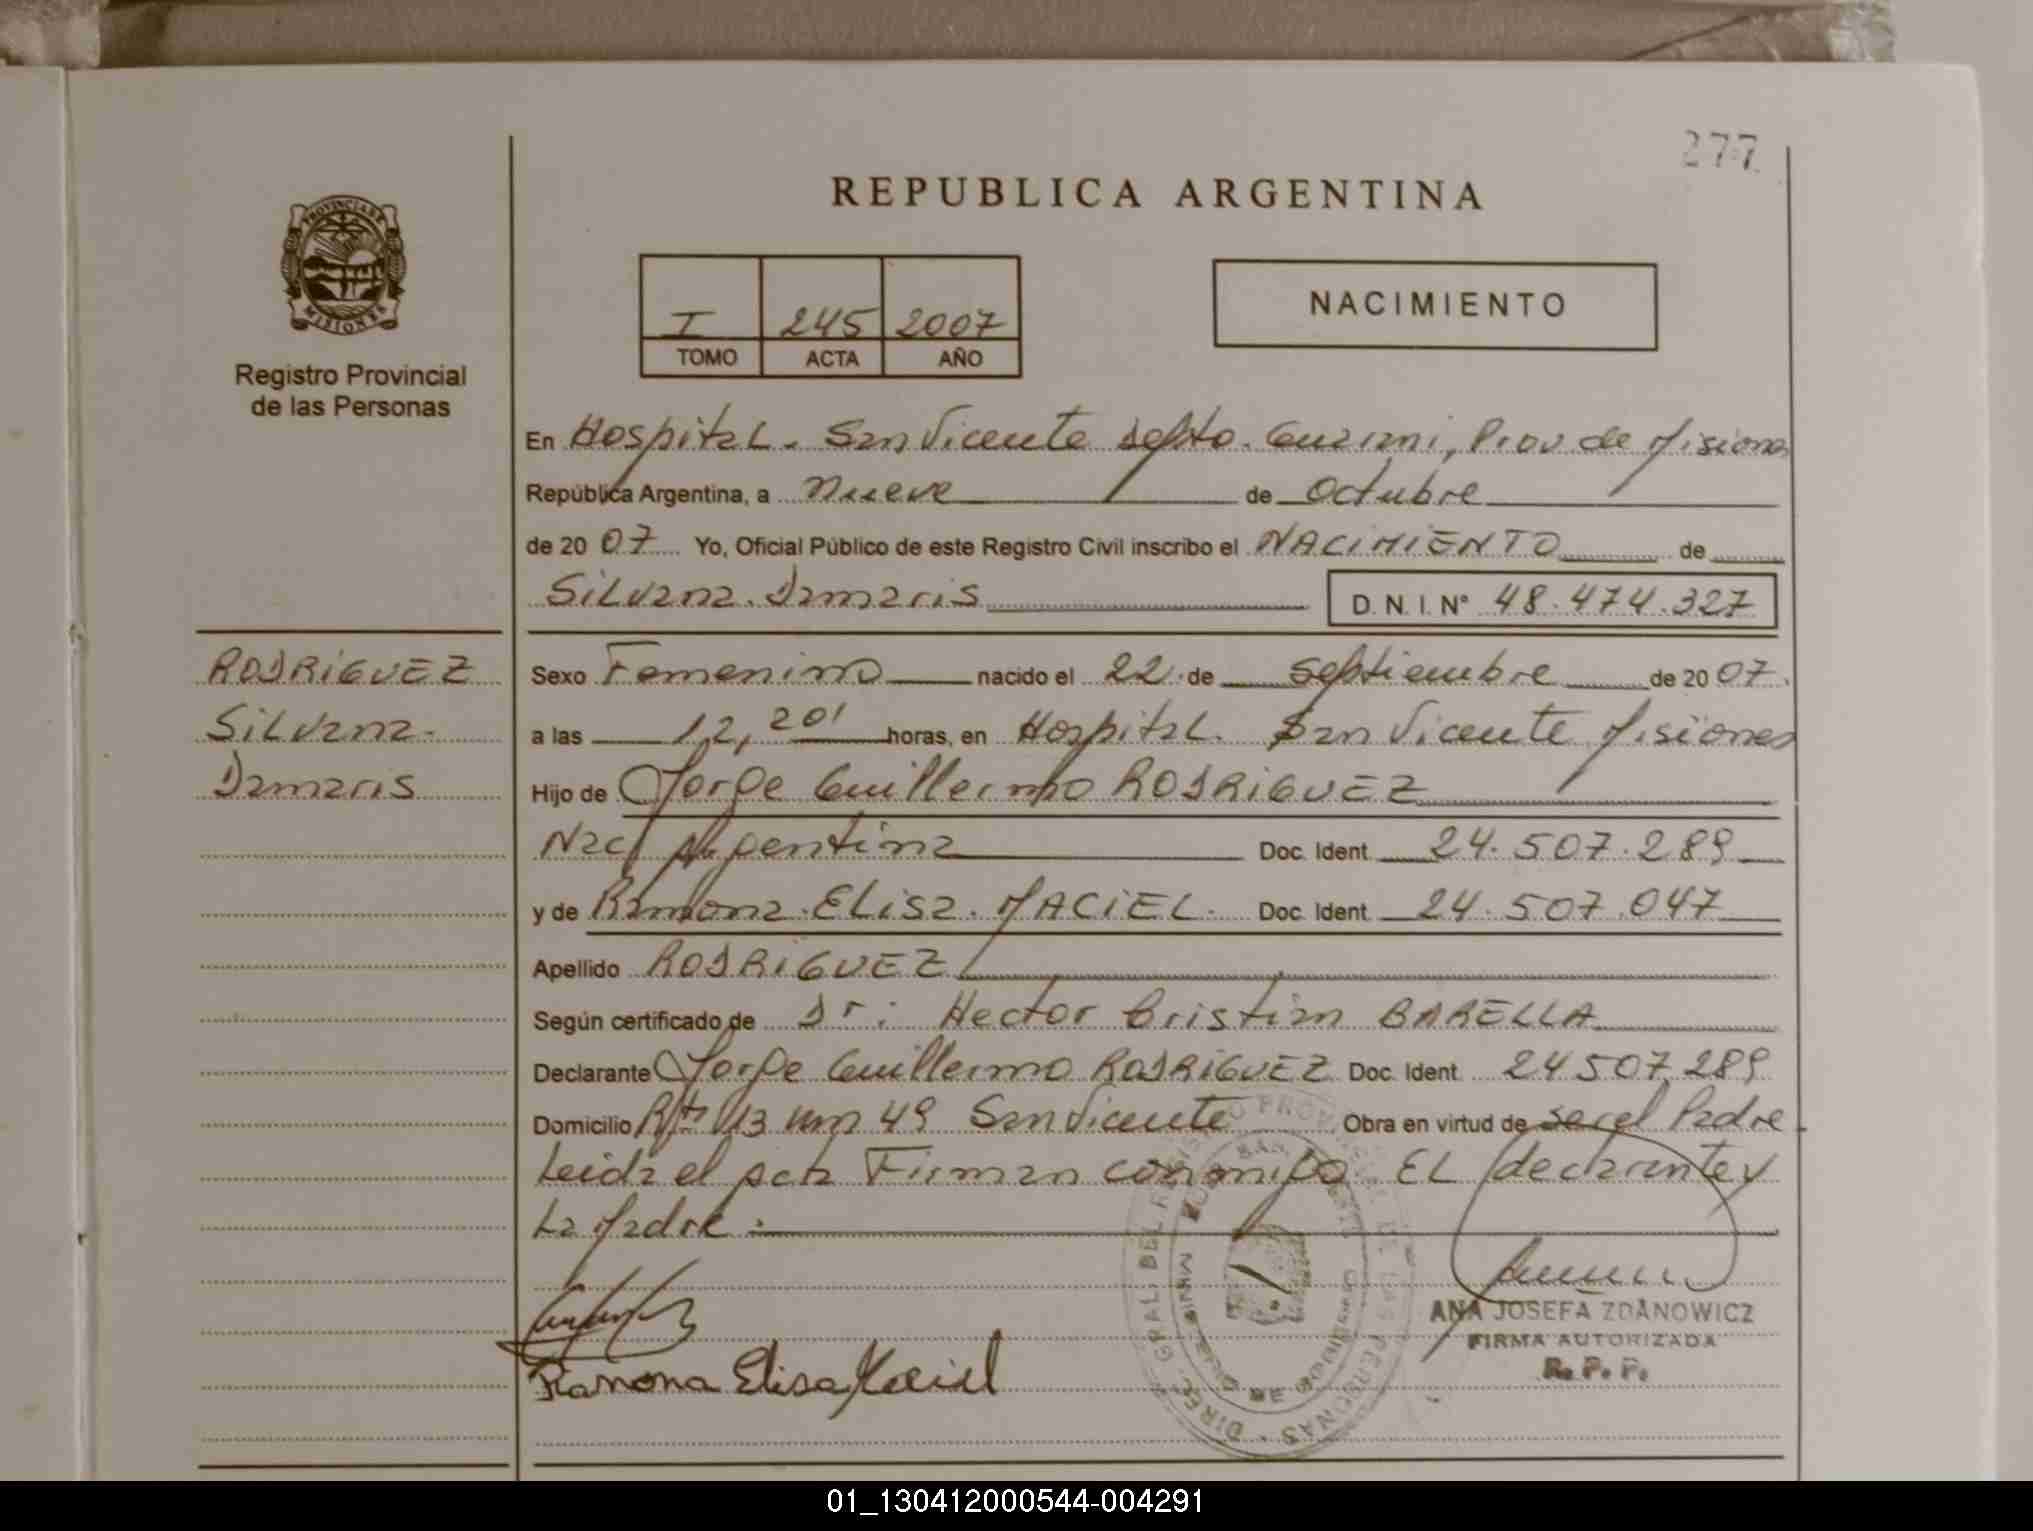 277
REPUBLICA ARGENTINA
PROVINCIA DE
MISIONES
Registro Provincial
de las Personas
I 245 2007
TOMO ACTA AÑO
NACIMIENTO
En Hospital. San Vicente Depto. Guarani, Prov. de Misiones
República Argentina, a nueve de Octubre
de 2007 Yo, Oficial Público de este Registro Civil inscribo el NACIMIENTO de
Silvana Damaris D. N. I. N° 48.474.327
RODRIGUEZ
Silvana
Damaris
Sexo Femenino nacido el 22 de Septiembre de 2007.
a las 12,20' horas, en Hospital. San Vicente Misiones
Hijo de Jorge Guillermo RODRIGUEZ
Nac Argentina Doc. Ident. 24.507.289
y de Ramona Elisa MACIEL Doc. Ident. 24.507.047
Apellido RODRIGUEZ
Según certificado de Dr: Hector Cristian BARELLA
Declarante Jorge Guillermo RODRIGUEZ Doc. Ident. 24507.289
Domicilio Rta 13 km 49 San Vicente Obra en virtud de ser el Padre
Leida el acta Firman conmigo EL declarante y
La Madre:
Ramona Elisa Maciel
ANA JOSEFA ZDANOWICZ
FIRMA AUTORIZADA
R. P. P.
01_130412000544-004291